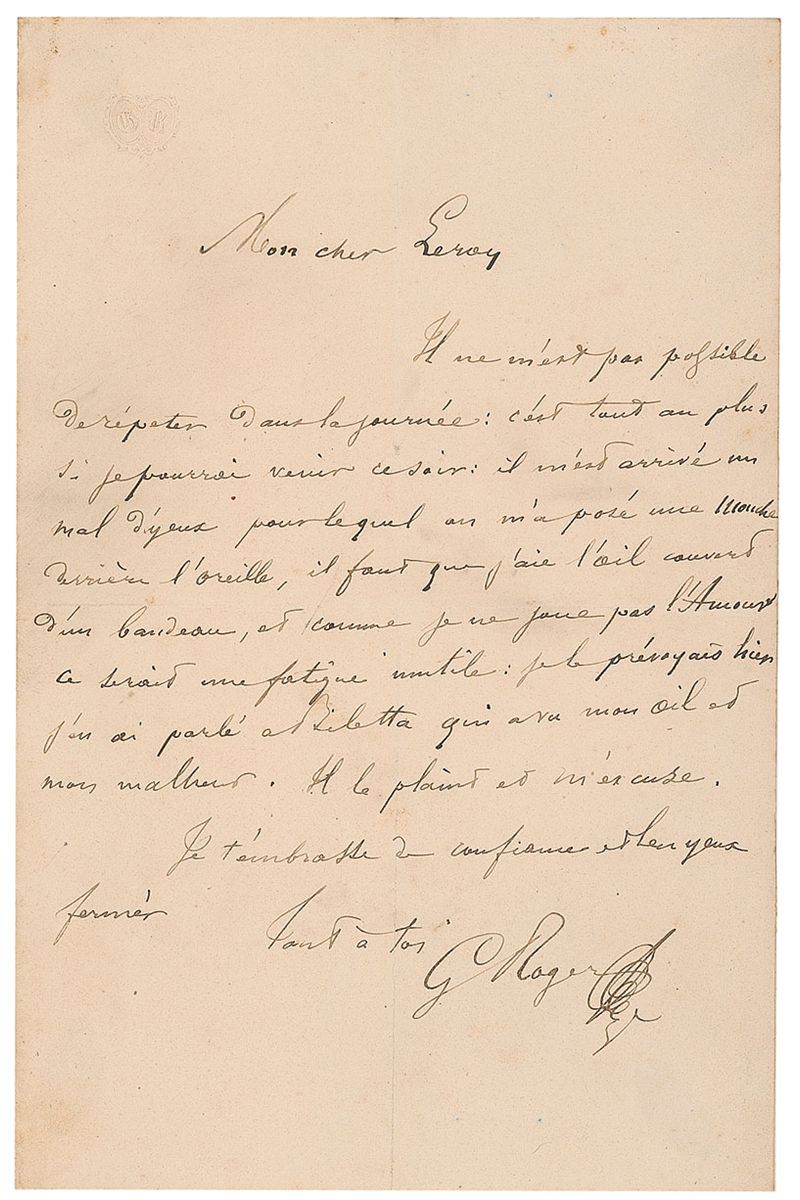 G R
Mon cher Leroy
Il ne m'est pas possible
de répéter dans la journée : c'est tout au plus
si je pourrai venir ce soir : il m'est arrivé un
mal d'yeux pour lequel on m'a posé une mouche
derrière l'oreille, il faut que j'aie l'œil couvert
d'un bandeau, et comme je ne joue pas l'Amour
ce serait une fatigue inutile : je le prévoyais hier
j'en ai parlé a Biletta qui a vu mon œil et
mon malheur. Il le plaint et m'excuse.
Je t'embrasse de confiance et les yeux
fermés
Tout à toi
G Roger